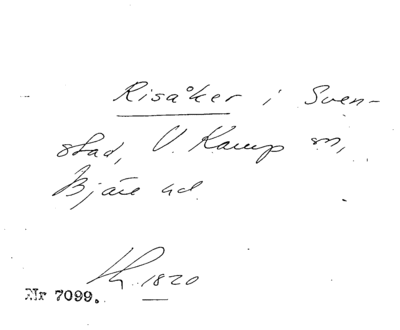 Risåker i Sven-
stad, V. Karup sn,
Bjäre hd.
1820
Nr 7099.